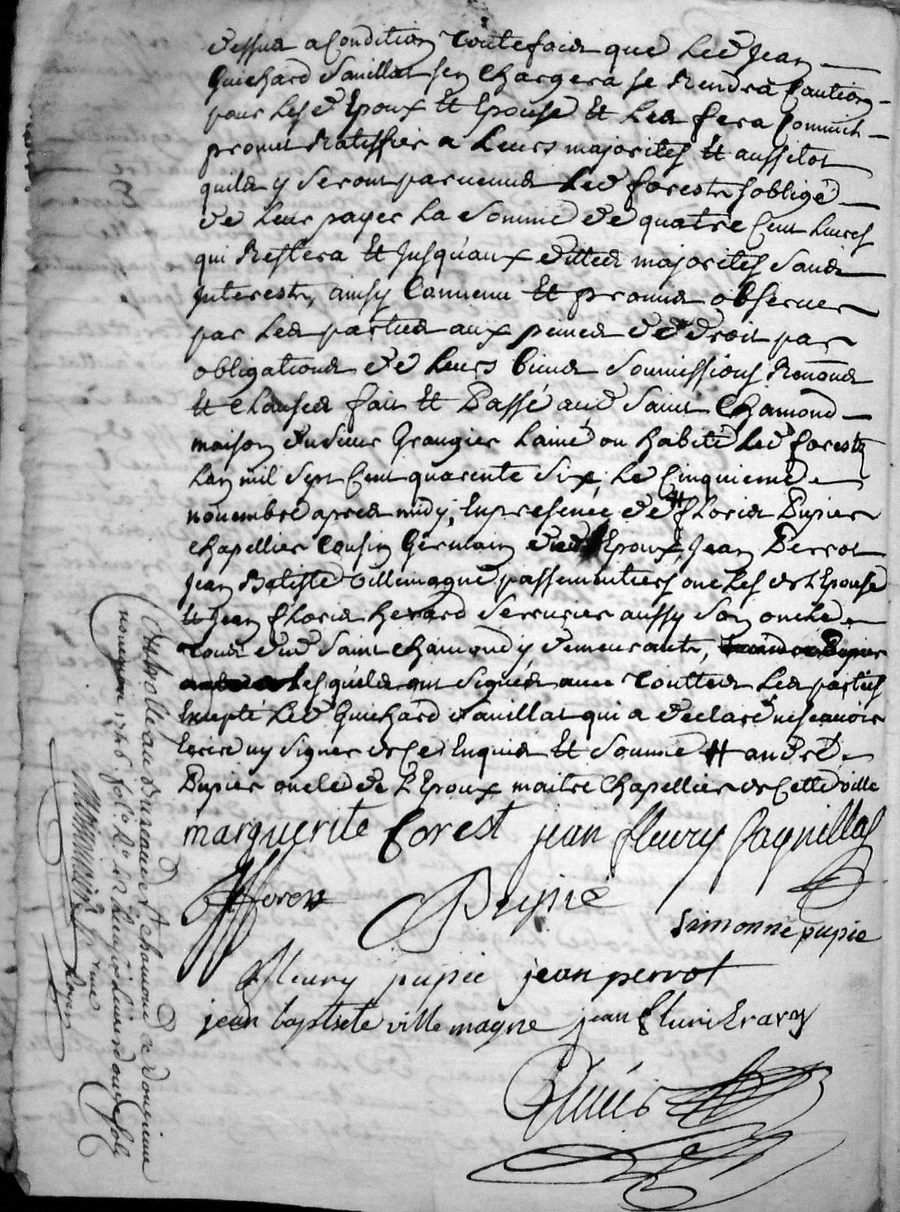 dessus a Condition toutefois que led Jean
Guichard Sauillat sen Chargera se Rendra Caution
pour lesd Epoux Et Epouse Et les fera
promet Ratiffier a leurs majorités Et aussitot
quils y seront paruenus led forestz soblige
de leur payer la somme de quatre Cent liures
qui Restera Et jusquaux dittes majorités sans
Interests, ainsy Conuenu Et promis obseruer
par les parties aux peines de droit par
obligations de leurs biens soumissions Renons
Et Clauses fait Et Passé aud Saint Chamond
maison du sieur Grangier lainé ou habite led forestz
Lan mil sept Cent quarente six, le Cinquieme
nouembre apres midy, En presence de # floris Dupier
Chapellier Cousin Germain dud Epoux, Jean Perrot
Jean Batiste Villemagne passementiers oncles de l'Epouse
Et Jean floris herard serrurier aussy son oncle
tous dud Saint Chamond y demeurants,
lesquels ont signés auec touttes les parties
Excepté led Guichard Sauillat qui a declaré ne scauoir
Ecrire ny signer de Ce Enquis Et sommé # andré
Dupier oncle de l'Epoux maitre Chapellier de Cette ville
marguerite Forest jean fleury
fforest Dupié
Simonne pupie
fleury pupié jean perrot
jean baptiste ville magne jean fluri Erard
Controllé au bureau de St chamond le douzieme
nouembre 1746 fol. Reçu liures douze sols